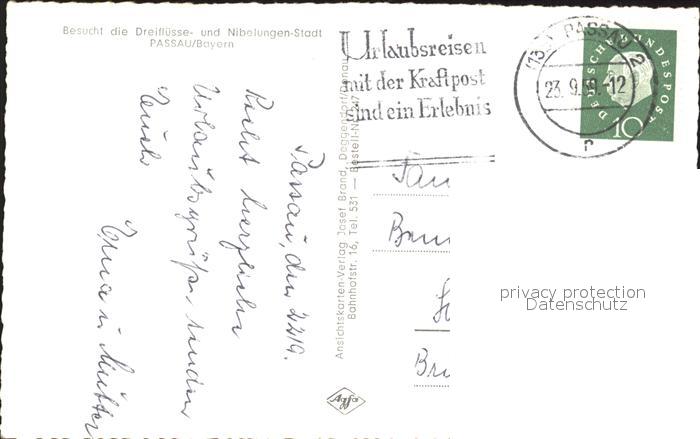 Besucht die Dreiflüsse- und Nibelungen-Stadt
PASSAU/Bayern
Urlaubsreisen
mit der Kraftpost
sind ein Erlebnis
(13b) PASSAU 2
23.9.59.-12
r
DEUTSCHE BUNDESPOST
10
Passau, den 22/9.
Recht herzliche
Urlaubsgrüße, senden
Euch
Erna u. Mutter
Ansichtskarten-Verlag Josef Brand, Deggendorf/Donau
Bahnhofstr. 16, Tel. 531 — Bestell-Nr.
Agfa
Fam
Br
privacy protection
Datenschutz